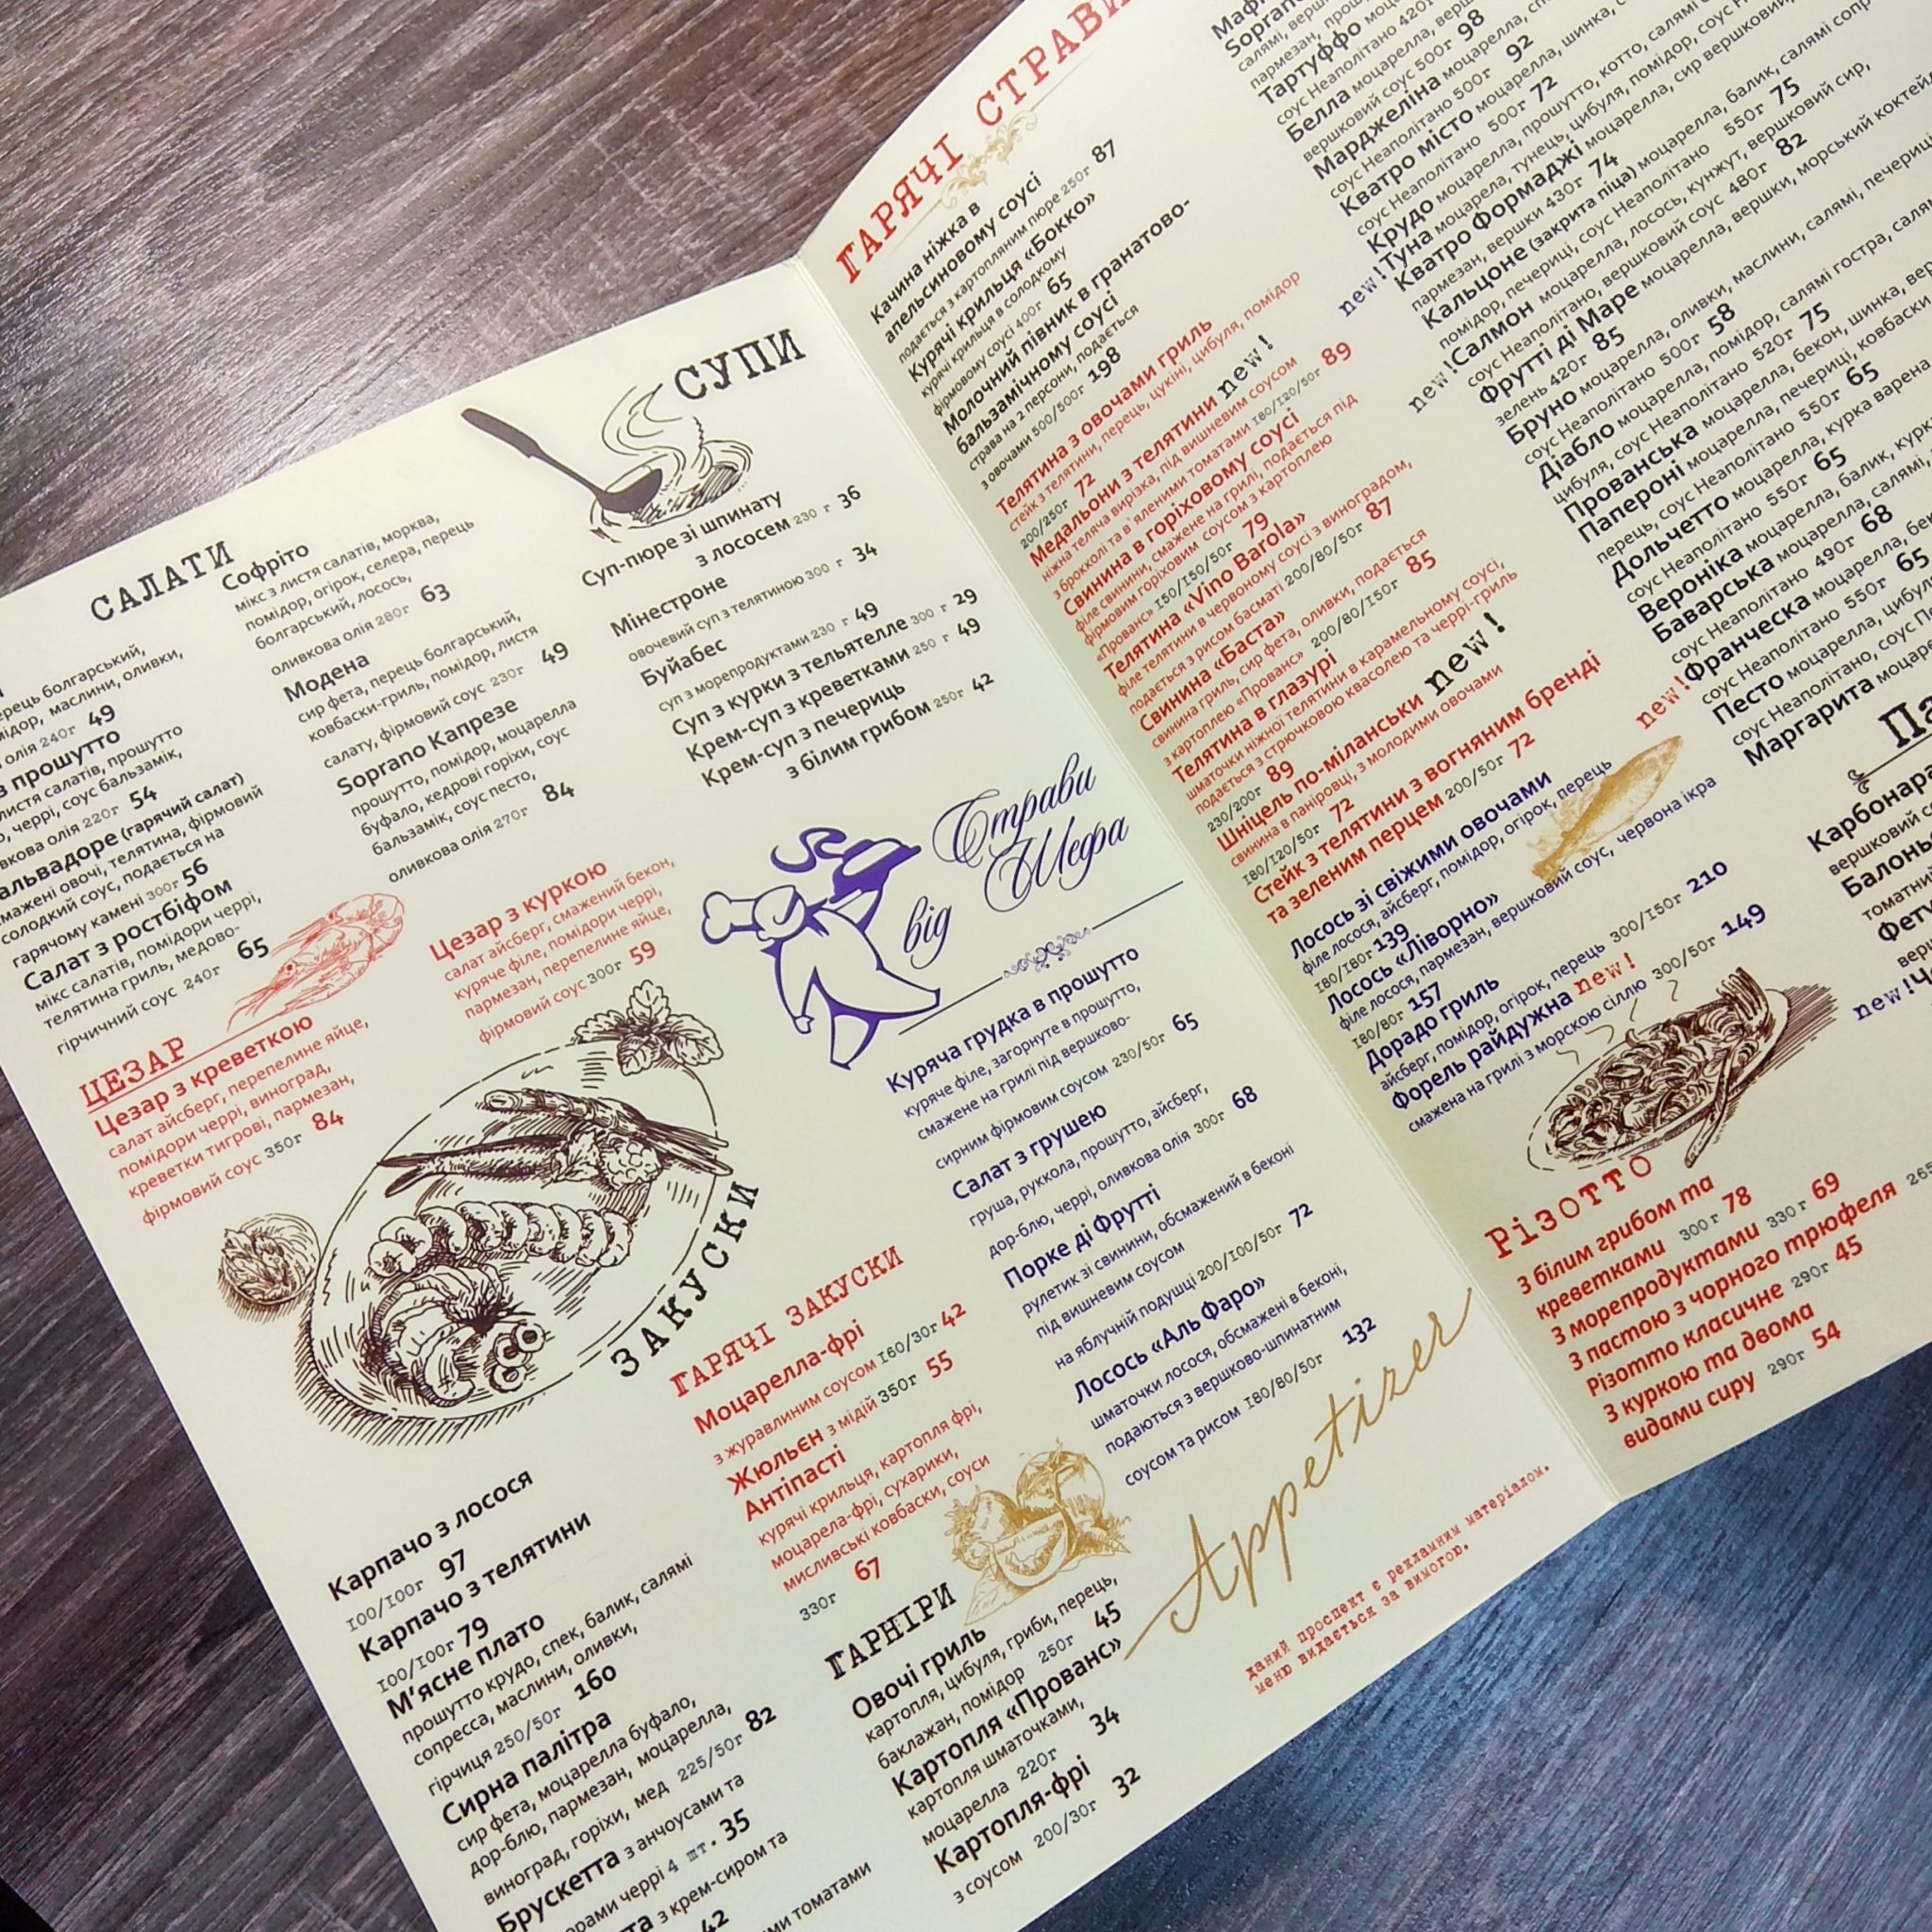 САЛАТИ
ерець болгарський,
мідор, маслини, оливки,
олія 240г 49
з прошутто
листя салатів, прошутто
о, черрі, соус бальзамік,
вкова олія 220г 54
альвадоре (гарячий салат)
мажені овочі, телятина, фірмовий
солодкий соус, подається на
гарячому камені 300г 56
Салат з ростбіфом
мікс салатів, помідори черрі,
телятина гриль, медово-
гірчичний соус 240г 65
Софріто
мікс з листя салатів, морква,
помідор, огірок, селера, перець
болгарський, лосось,
оливкова олія 280г 63
Модена
сир фета, перець болгарський,
ковбаски-гриль, помідор, листя
салату, фірмовий соус 230г 49
Soprano Капрезе
прошутто, помідор, моцарелла
буфало, кедрові горіхи, соус
бальзамік, соус песто,
оливкова олія 270г 84
ЦЕЗАР
Цезар з креветкою
салат айсберг, перепелине яйце,
помідори черрі, виноград,
креветки тигрові, пармезан,
фірмовий соус 350г 84
Цезар з куркою
салат айсберг, смажений бекон,
куряче філе, помідори черрі,
пармезан, перепелине яйце,
фірмовий соус 300г 59
СУПИ
Суп-пюре зі шпинату
з лососем 230 г 36
Мінестроне
овочевий суп з телятиною 300 г 34
Буйабес
суп з морепродуктами 230 г 49
Суп з курки з тельятелле 300 г 29
Крем-суп з креветками 250 г 49
Крем-суп з печериць
з білим грибом 250г 42
Страви
від Шефа
Куряча грудка в прошутто
куряче філе, загорнуте в прошутто,
смажене на грилі під вершково-
сирним фірмовим соусом 230/50г 65
Салат з грушею
груша, руккола, прошутто, айсберг,
дор-блю, черрі, оливкова олія 300г 68
Порке ді Фрутті
рулетик зі свинини, обсмажений в беконі
під вишневим соусом
на яблучній подушці 200/100/50г 72
Лосось «Аль Фаро»
шматочки лосося, обсмажені в беконі,
подаються з вершково-шпинатним
соусом та рисом 180/80/50г 132
ЗАКУСКИ
Карпачо з лосося
100/100г 97
Карпачо з телятини
100/100г 79
М'ясне плато
прошутто крудо, спек, балик, салямі
сопресса, маслини, оливки,
гірчиця 250/50г 160
Сирна палітра
сир фета, моцарелла буфало,
дор-блю, пармезан, моцарелла,
виноград, горіхи, мед 225/50г 82
Брускетта з анчоусами та
орами черрі 4 шт. 35
та з крем-сиром та
ими томатами
42
ГАРЯЧІ ЗАКУСКИ
Моцарелла-фрі
з журавлиним соусом 160/30г 42
Жюльєн з мідій 350г 55
Антіпасті
курячі крильця, картопля фрі,
моцарела-фрі, сухарики,
мисливські ковбаски, соуси
330г 67
ГАРНІРИ
Овочі гриль
картопля, цибуля, гриби, перець,
баклажан, помідор 250г 45
Картопля «Прованс»
картопля шматочками,
моцарелла 220г 34
Картопля-фрі
з соусом 200/30г 32
Appetizer
даний проспект є рекламним матеріалом.
меню видається за вимогою.
ГАРЯЧІ СТРАВИ
Качина ніжка в
апельсиновому соусі
подається з картопляним пюре 250г 87
Курячі крильця «Бокко»
курячі крильця в солодкому
фірмовому соусі 400г 65
Молочний півник в гранатово-
бальзамічному соусі
страва на 2 персони, подається
з овочами 500/500г 198
Телятина з овочами гриль
стейк з телятини, перець, цукіні, цибуля, помідор
200/250г 72
Медальони з телятини new!
ніжна теляча вирізка, під вишневим соусом
з броколлі та в'яленими томатами 180/120/50г 89
Свинина в горіховому соусі
філе свинини, смажене на грилі, подається під
фірмовим горіховим соусом з картоплею
«Прованс» 150/150/50г 79
Телятина «Vino Barola»
філе телятини в червоному соусі з виноградом,
подається з рисом басматі 200/80/50г 87
Свинина «Баста»
свинина гриль, сир фета, оливки, подається
з картоплею «Прованс» 200/80/150г 85
Телятина в глазурі
шматочки ніжної телятини в карамельному соусі,
подається з стрючковою квасолею та черрі-гриль
230/200г 89
Шніцель по-міланськи new!
свинина в паніровці, з молодими овочами
180/120/50г 72
Стейк з телятини з вогняним бренді
та зеленим перцем 200/50г 72
Лосось зі свіжими овочами
філе лосося, айсберг, помідор, огірок, перець
180/180г 139
Лосось «Ліворно»
філе лосося, пармезан, вершковий соус, червона ікра
180/80г 157
Дорадо гриль
айсберг, помідор, огірок, перець 300/150г 210
Форель райдужна new!
смажена на грилі з морскою сіллю 300/50г 149
РІЗОТТО
З білим грибом та
креветками 300г 78
З морепродуктами 330г 69
З пастою з чорного трюфеля 265
Різотто класичне 290г 45
З куркою та двома
видами сиру 290г 54
Soprano
салямі,
пармезан,
соус Неаполітано 420г
Тартуффо
Белла моцарелла,
вершковий соус 500г 98
Марджеліна моцарелла,
соус Неаполітано 500г 92
Кватро місто моцарелла, шинка,
соус Неаполітано 500г 72
Крудо моцарелла, прошутто, котто, салямі
new! Туна моцарела, тунець, цибуля, помідор, соус
Кватро Формаджі моцарелла, сир вершковий,
пармезан, вершки 430г 74
Кальцоне (закрита піца) моцарелла, балик, салямі
помідор, печериці, соус Неаполітано 550г 75
new! Салмон моцарелла, лосось, кунжут, вершковий сир,
соус Неаполітано, вершковий соус 480г 82
Фрутті ді Маре моцарелла, вершки, морський коктейль
зелень 420г 85
Бруно моцарелла, оливки, маслини, салямі, печериці
соус Неаполітано 500г 58
Діабло моцарелла, помідор, салямі гостра,
цибуля, соус Неаполітано 520г 75
Прованська моцарелла, бекон, шинка,
Папероні моцарелла, печериці, ковбаски
перець, соус Неаполітано 550г 65
Дольчетто моцарелла, курка варена
соус Неаполітано 550г 65
Вероніка моцарелла, балик,
Баварська моцарелла, салямі,
соус Неаполітано 490г 68
new! Франческа моцарелла,
соус Неаполітано 550г 65
Песто моцарелла,
соус Неаполітано, соус
Маргарита
Па
Карбонара
вершковий с
Балонь
томатний
Фету
верш
new! Ч